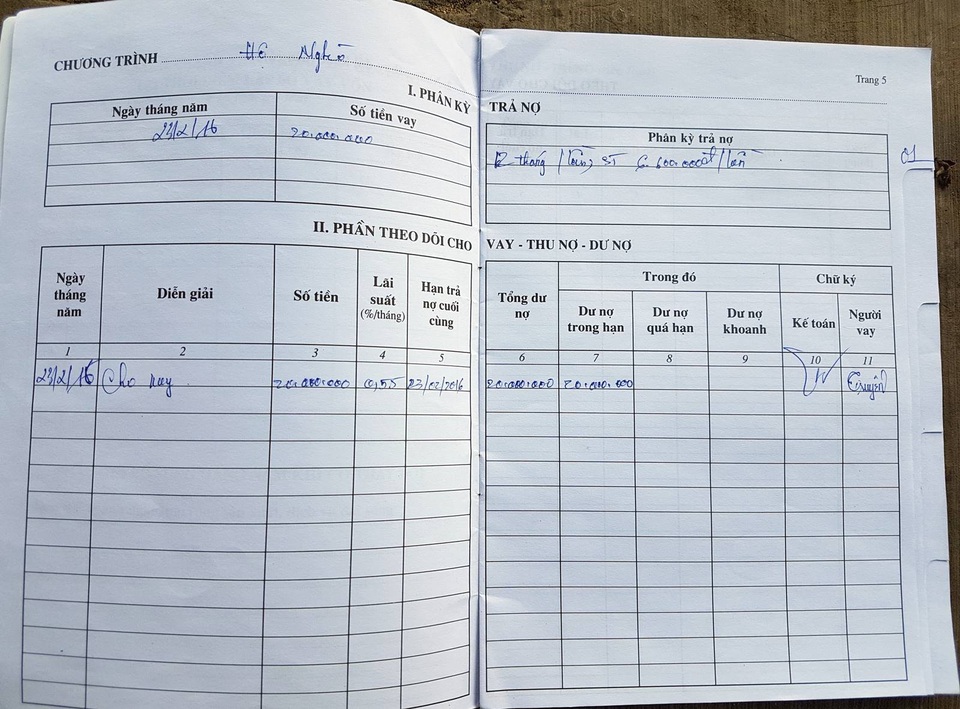 CHƯƠNG TRÌNH Hộ Nghèo
Trang 5
I. PHÂN KỲ TRẢ NỢ
Ngày tháng năm Số tiền vay Phân kỳ trả nợ
23/2/16 20.000.000 12 tháng / lần, ST 6.600.000đ/lần
01
II. PHẦN THEO DÕI CHO VAY - THU NỢ - DƯ NỢ
Ngày tháng năm Diễn giải Số tiền Lãi suất (%/tháng) Hạn trả nợ cuối cùng Tổng dư nợ Trong đó Chữ ký
Dư nợ trong hạn Dư nợ quá hạn Dư nợ khoanh Kế toán Người vay
1 2 3 4 5 6 7 8 9 10 11
23/2/16 Cho vay 20.000.000 0,55 23/02/2016 20.000.000 20.000.000